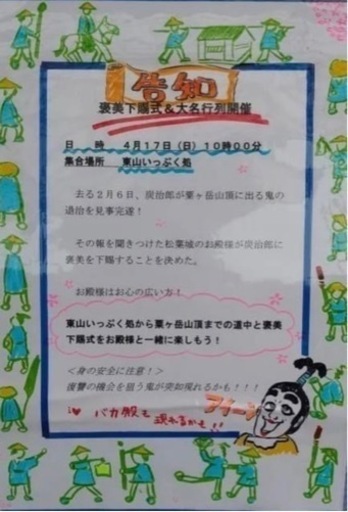 告知
褒美下賜式＆大名行列開催
日　時　４月１７日（日）１０時００分
集合場所　東山いっぷく処
去る２月６日、炭治郎が粟ヶ岳山頂に出る鬼の
退治を見事完遂！
その報を聞きつけた松葉城のお殿様が炭治郎に
褒美を下賜することを決めた。
お殿様はお心の広い方！
東山いっぷく処から粟ヶ岳山頂までの道中と褒美
下賜式をお殿様と一緒に楽しもう！
＜身の安全に注意！＞
復讐の機会を狙う鬼が突如現れるかも！！！
バカ殿も
現れるかも!!
アイーン